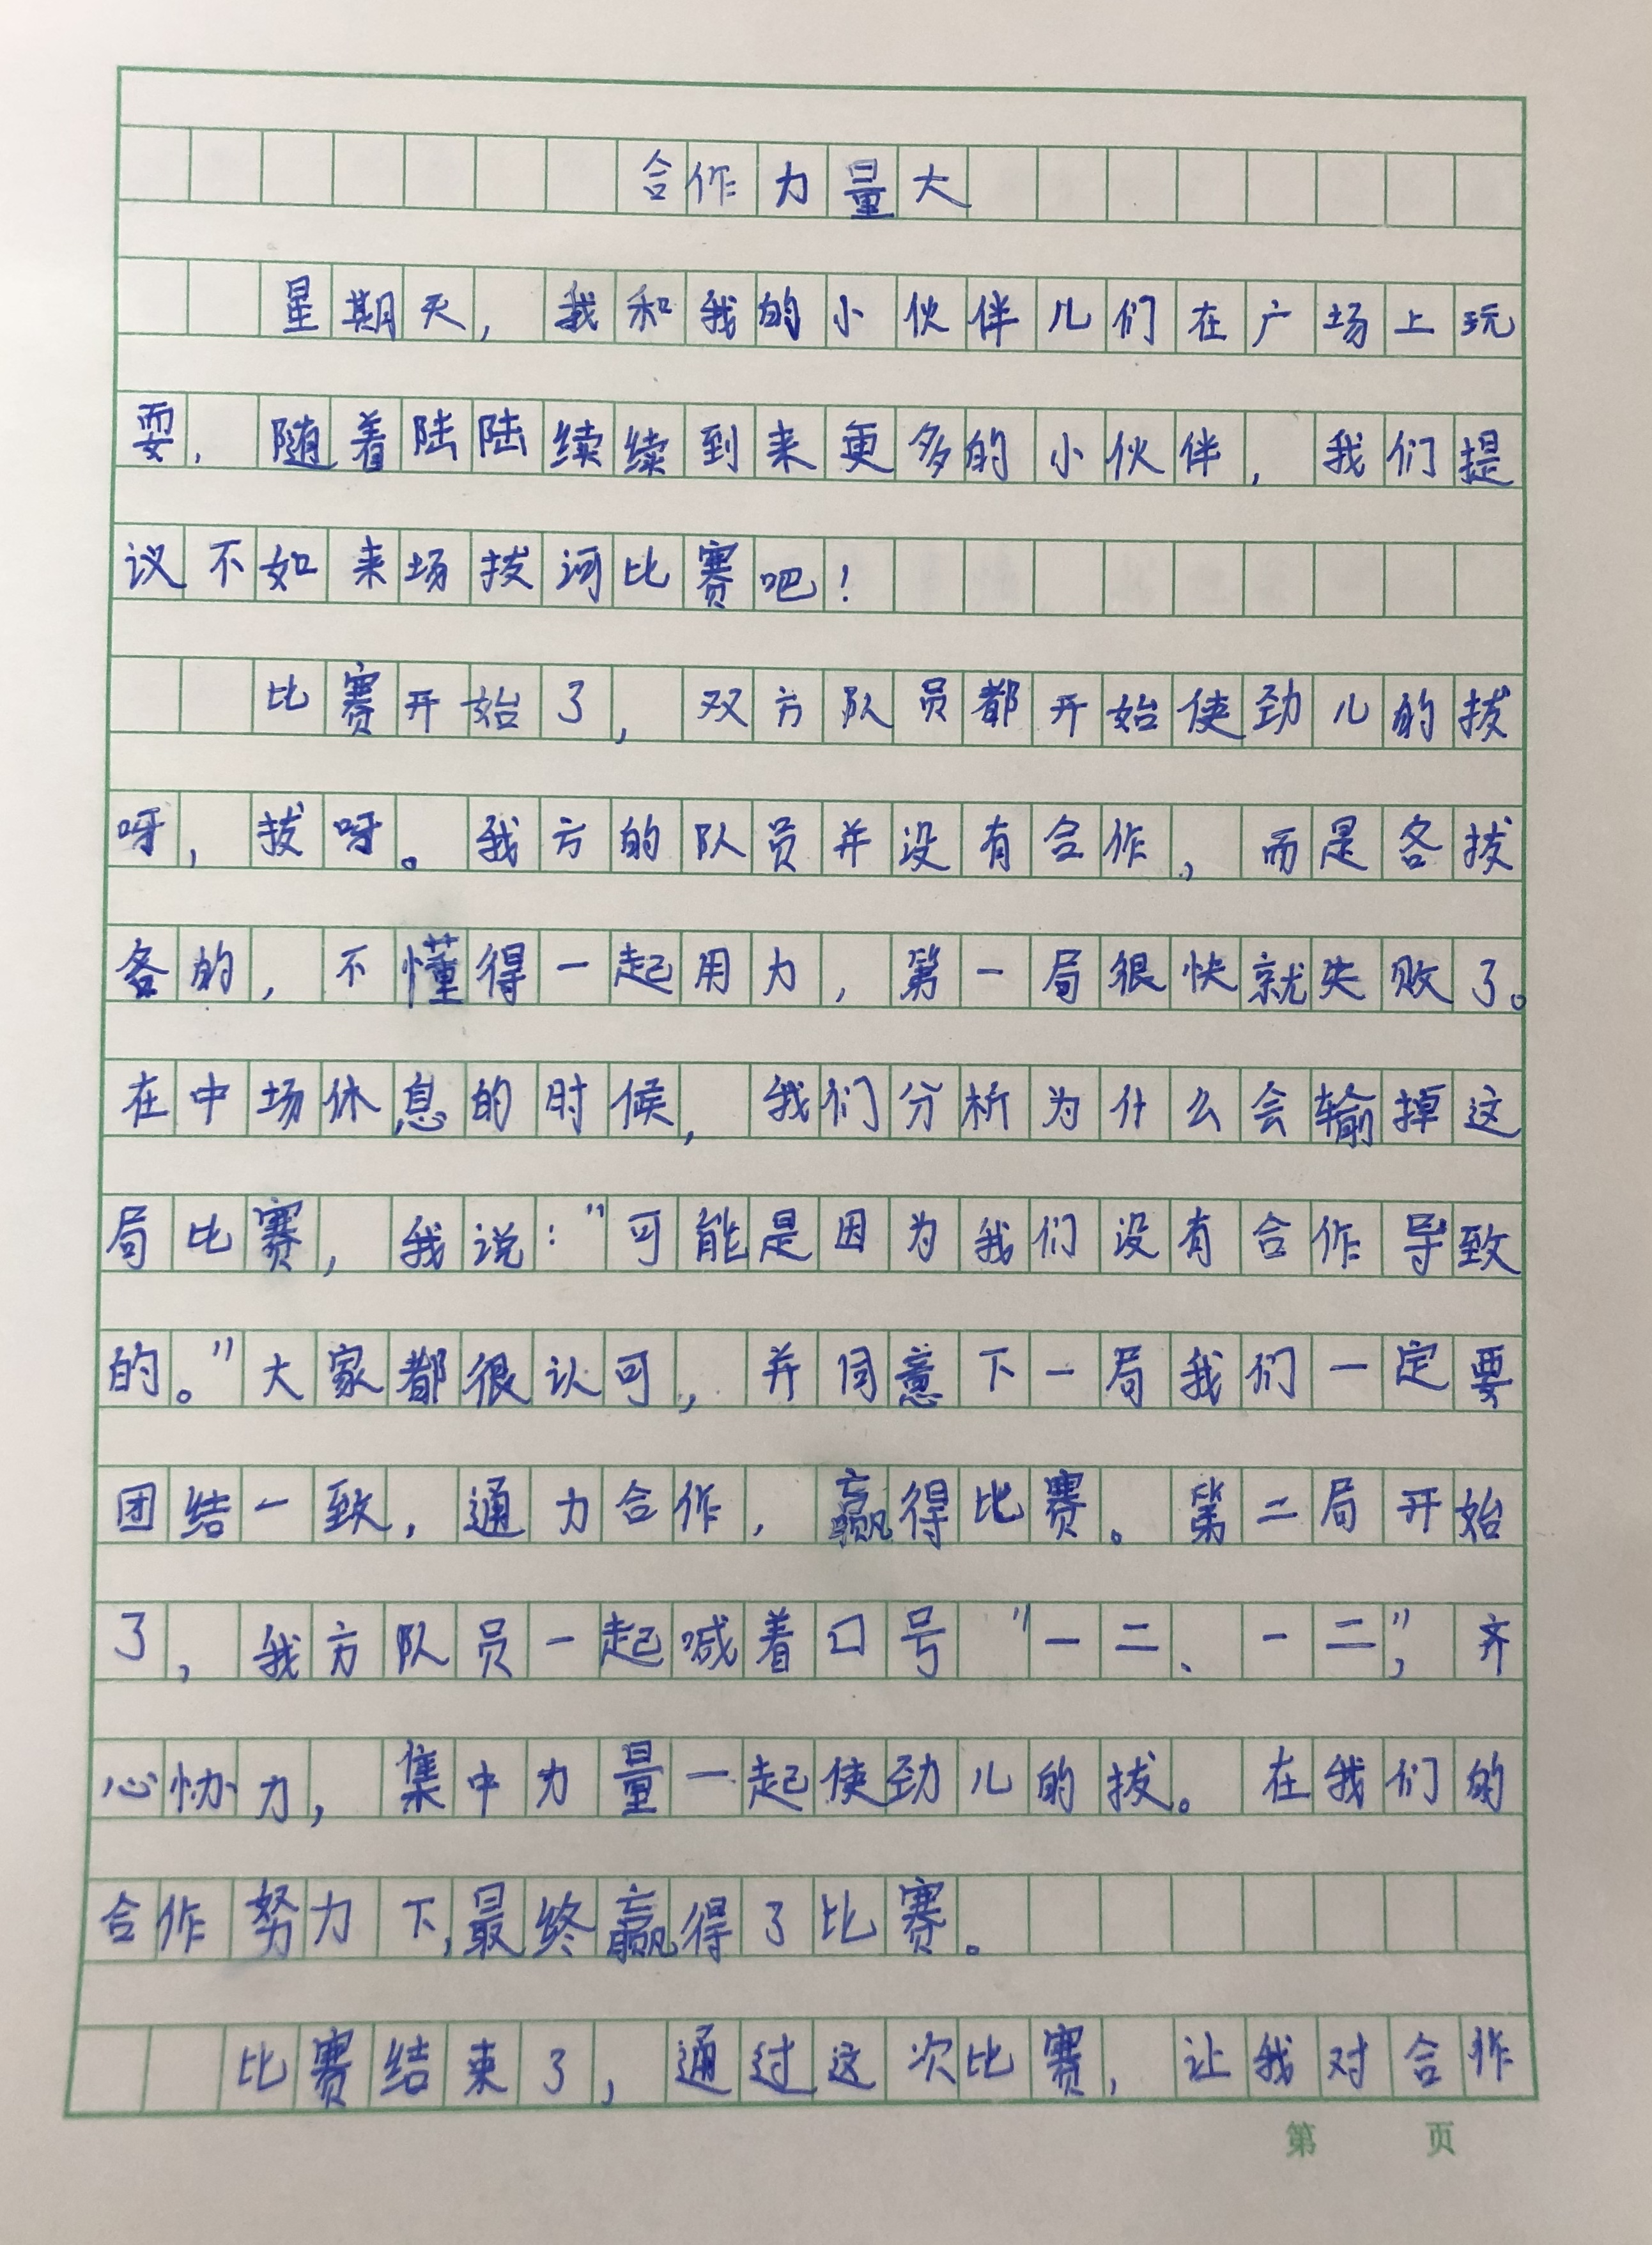 合作力量大
星期天，我和我的小伙伴儿们在广场上玩
耍，随着陆陆续续到来更多的小伙伴，我们提
议不如来场拔河比赛吧！
比赛开始了，双方队员都开始使劲儿的拔
呀，拔呀。我方的队员并没有合作，而是各拔
各的，不懂得一起用力，第一局很快就失败了。
在中场休息的时候，我们分析为什么会输掉这
局比赛，我说：“可能是因为我们没有合作导致
的。”大家都很认可，并同意下一局我们一定要
团结一致，通力合作，赢得比赛。第二局开始
了，我方队员一起喊着口号“一二、一二”，齐
心协力，集中力量一起使劲儿的拔。在我们的
合作努力下，最终赢得了比赛。
比赛结束了，通过这次比赛，让我对合作
第 页